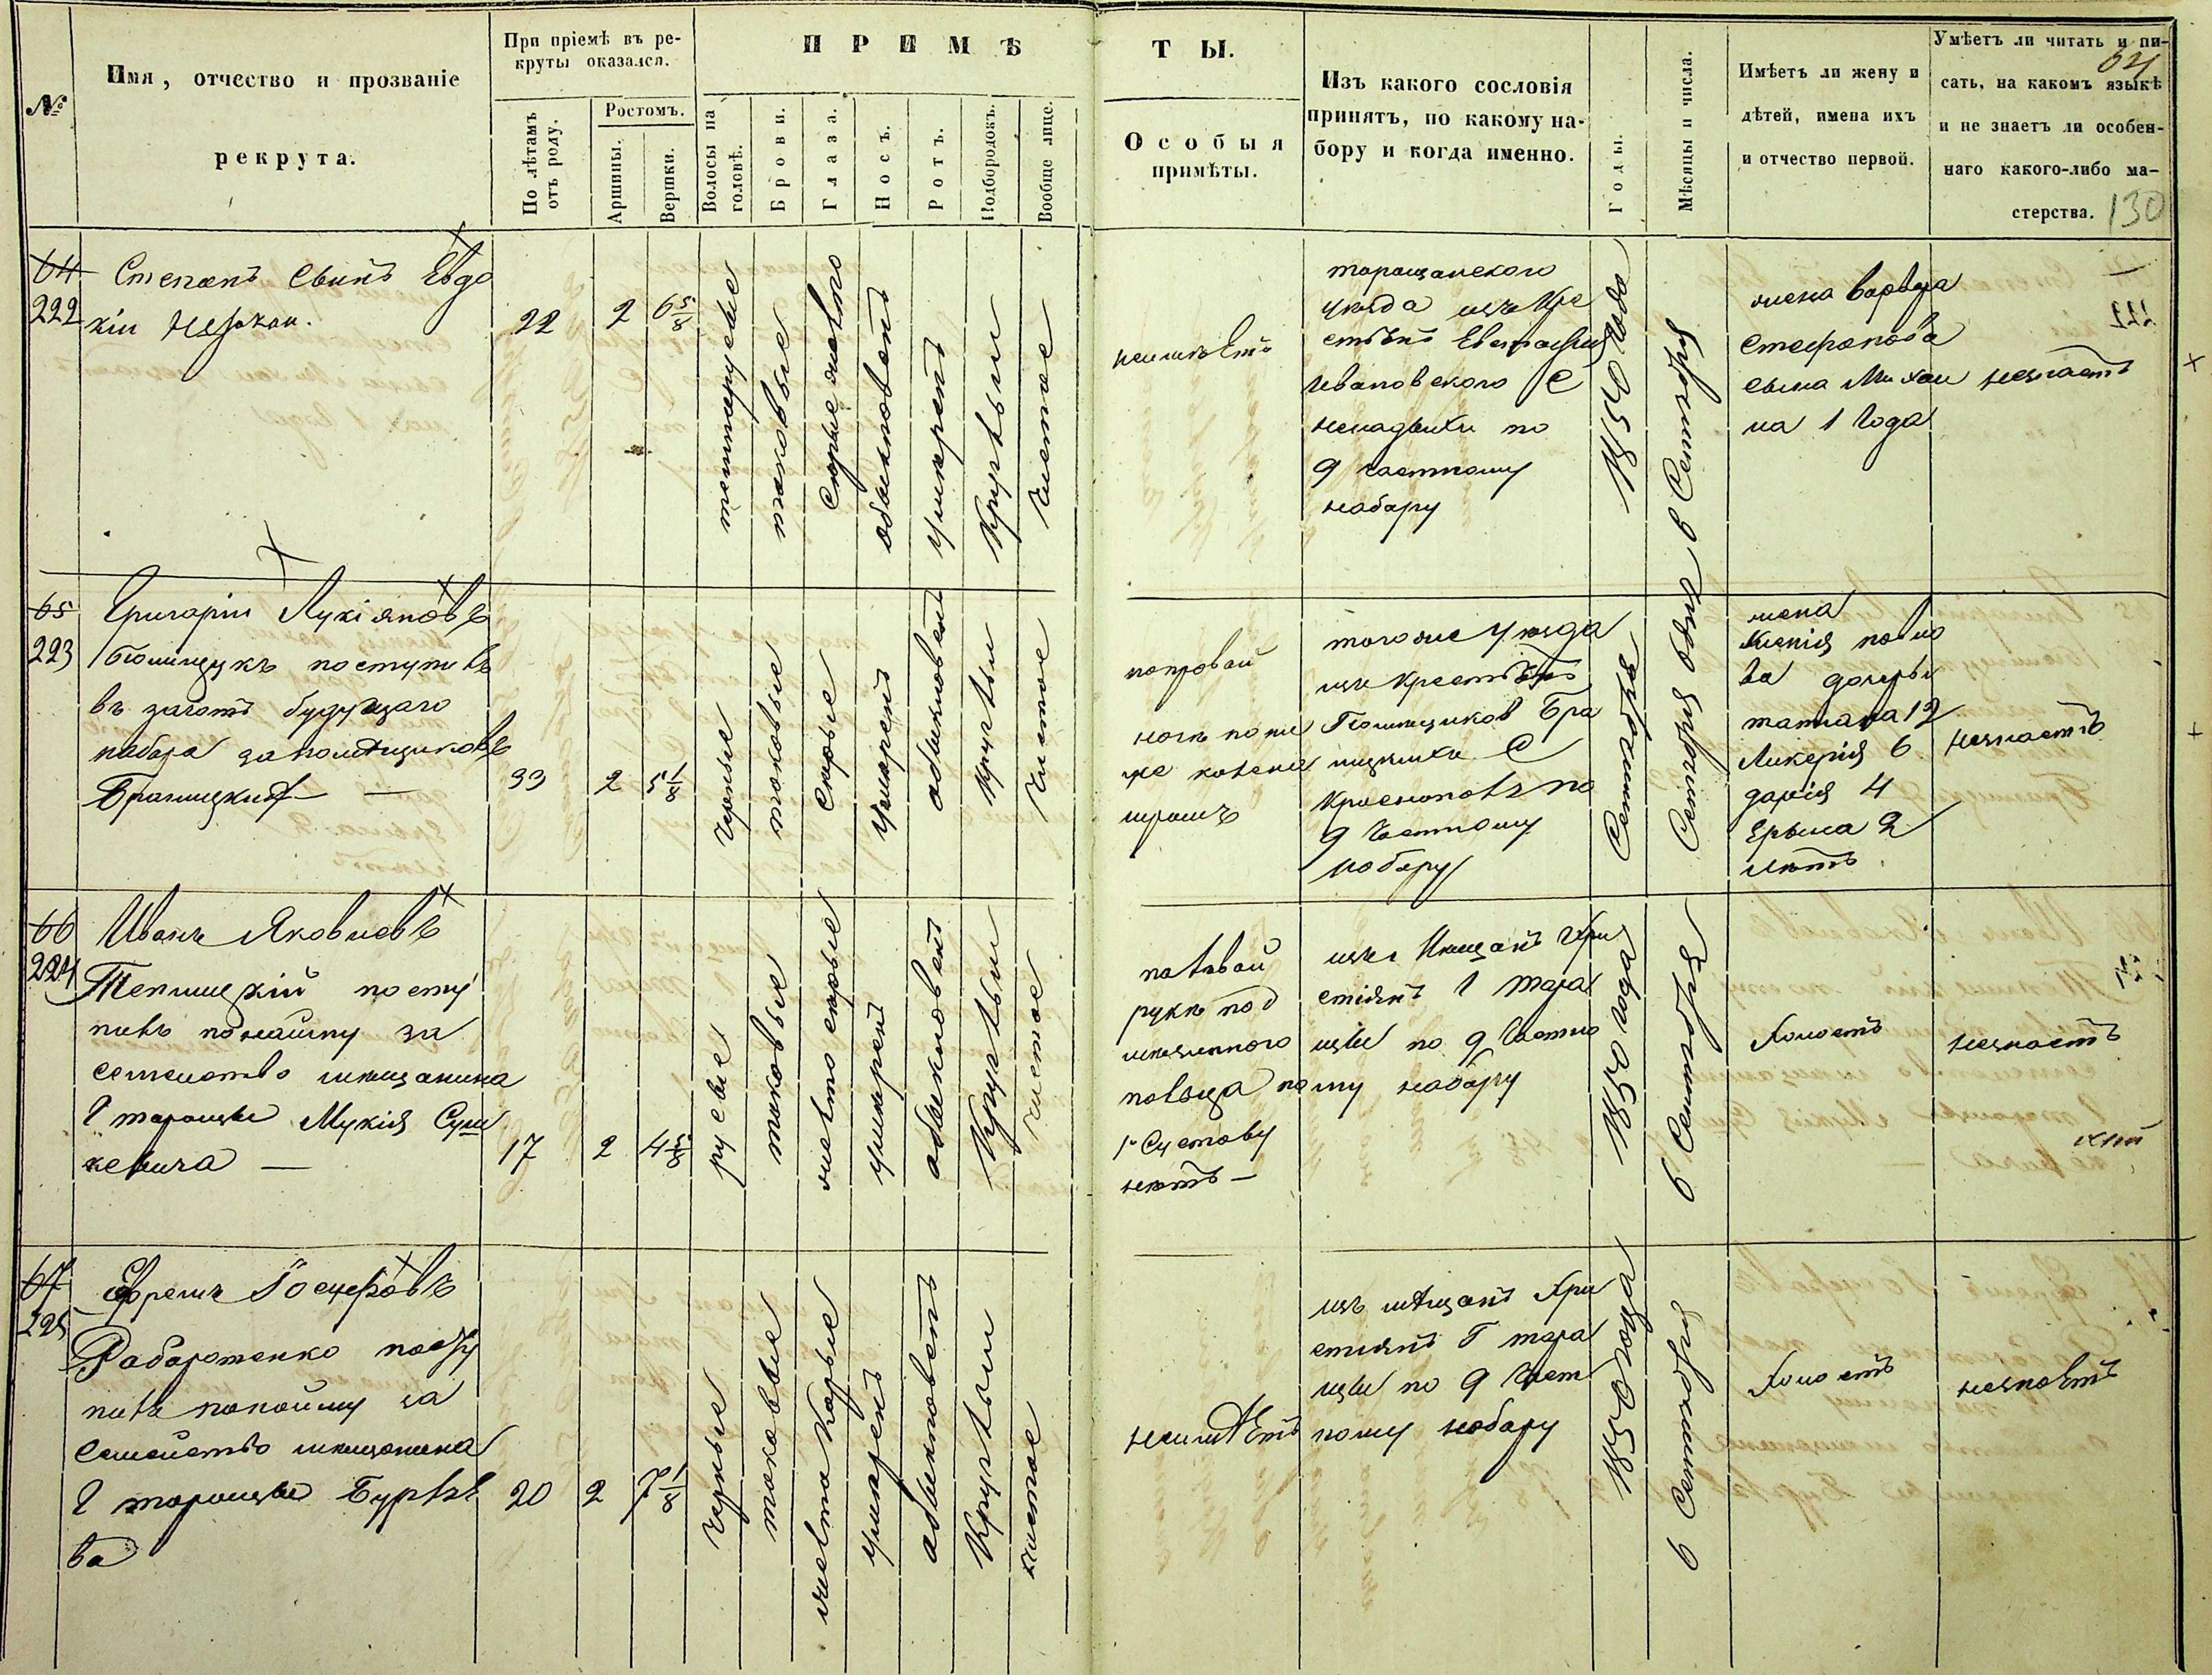 №
Имя, отчество и прозваніе
рекрута.
При пріемѣ въ ре-
круты оказался.
По лѣтамъ
отъ роду.
Ростомъ.
Аршины.
Вершки.
ПРИМѢ
ТЫ.
Волосы на
головѣ.
Брови.
Глаза.
Носъ.
Ротъ.
Подбородокъ.
Вообще лице.
Особыя
примѣты.
Изъ какого сословія
принятъ, по какому на-
бору и когда именно.
Годы.
Мѣсяцы и числа.
Имѣетъ ли жену и
дѣтей, имена ихъ
и отчество первой.
Умѣетъ ли читать и пи-
сать, на какомъ языкѣ
и не знаетъ ли особен-
наго какого-либо ма-
стерства.
130
64
222
Степанъ Сынъ Евдо
кіи
22
2
6 5/8
темнорусые
таковые
обыкновенъ
умѣренъ
Круглый
Чистое
неимѣетъ
таращанского
уѣзда изъ Кре
стьянъ
Ивановского С
по
9 частному
набору
1850 года
6 Сентября
жена Варвара
Стефанова
сына Михаи
ла 1 года
незнаетъ
65
223
Григорій Лукіяновъ
поступилъ
въ зачотъ будущаго
набора запомѣщиковъ
33
2
5 1/8
Черные
таковые
Сѣрые
Умѣренъ
обыкновенъ
Круглый
Чистое
направой
ногѣ
тогоже уѣзда
изъ Крестьянъ
Помѣщиков Бра
ницкихъ С
по
9 Частному
набору
Сентября
жена
Ксенія
ва дочерьи
татіана 12
Ликерія 6
дарія 4
2
лѣтъ
незнаетъ
66
224
Иванъ Яковлевъ
посту
пилъ понайму за
семейство мѣщанина
Г таращи
17
2
4 5/8
русые
таковые
желтосѣрые
умѣренъ
обыкновенъ
Круглый
чистое
налѣвой
рукѣ под
пальца
Суставу
нѣтъ —
изъ Мѣщанъ Хри
стіянъ Г тара
щи по 9 Частно
му набору
1850 года
6 Сентября
Холостъ
незнаетъ
67
225
Ефремъ Іосифовъ
посту
пилъ понайму за
Семейство мѣщанина
Г таращи
ва
20
2
7 1/8
Черные
таковые
желтокарые
умѣренъ
обыкновенъ
Круглый
чистое
неимѣетъ
изъ мѣщанъ Хри
стиянъ Г тара
щи по 9 Част
ному набору
1850 года
6 Сентября
Холостъ
незнаетъ